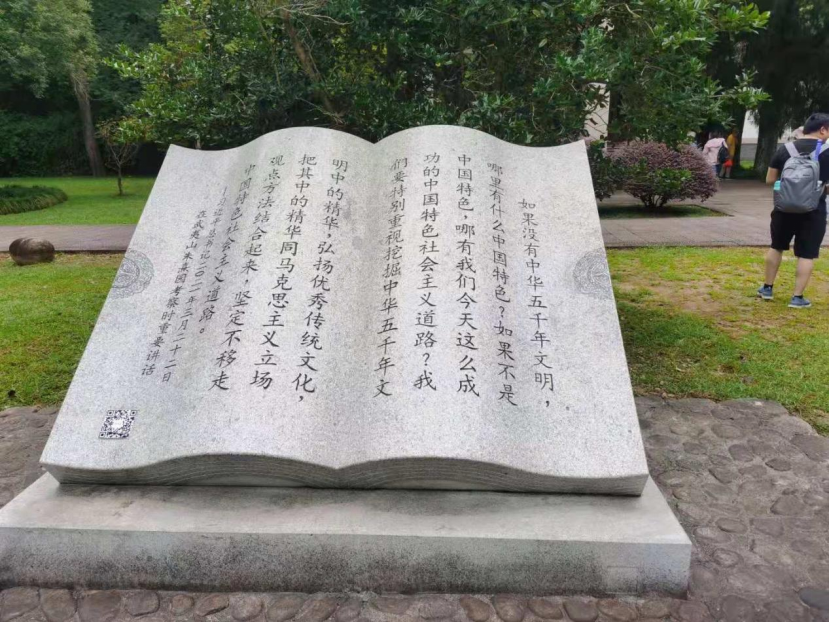 如果没有中华五千年文明，
哪里有什么中国特色？如果不是
中国特色，哪有我们今天这么成
功的中国特色社会主义道路？我
们要特别重视挖掘中华五千年文
明中的精华，弘扬优秀传统文化，
把其中的精华同马克思主义立场
观点方法结合起来，坚定不移走
中国特色社会主义道路。
——习近平总书记二〇二一年三月二十二日
在武夷山朱熹园考察时重要讲话